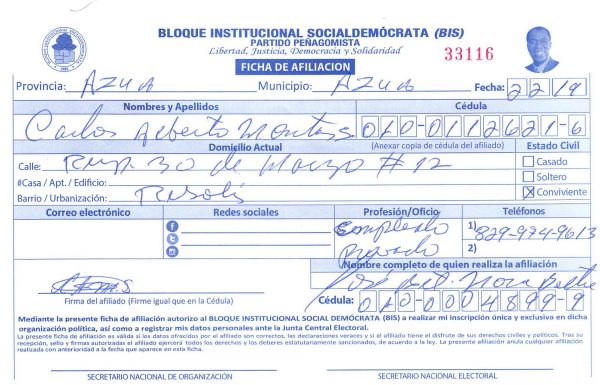 BLOQUE INSTITUCIONAL SOCIALDEMÓCRATA (BIS)
PARTIDO PEÑAGOMISTA
Libertad, Justicia, Democracia y Solidaridad
33116
FICHA DE AFILIACION
Provincia: AZUA Municipio: AZUA Fecha: 22/9
Nombres y Apellidos Cédula
Carlos Alberto 010-0112621-6
Domicilio Actual (Anexar copia de cédula del afiliado) Estado Civil
Calle: 30 de Marzo #12 Casado
#Casa / Apt. / Edificio: Soltero
Barrio / Urbanización: Conviviente
Correo electrónico Redes sociales Profesión/Oficio Teléfonos
Empleado 1) 829-974-9613
Privado 2)
Nombre completo de quien realiza la afiliación
José
Firma del afiliado (Firme igual que en la Cédula) Cédula: 010-0004899-9
Mediante la presente ficha de afiliación autorizo al BLOQUE INSTITUCIONAL SOCIAL DEMÓCRATA (BIS) a realizar mi inscripción única y exclusiva en dicha
organización política, así como a registrar mis datos personales ante la Junta Central Electoral.
La presente ficha de afiliación es válida si los datos ofrecidos por el afiliado son correctos, las declaraciones veraces y si el afiliado tiene el disfrute de sus derechos civiles y políticos. Tras su
recepción, sello y firmas autorizadas el afiliado ejercerá todos los derechos y los deberes estatutariamente sancionados, de acuerdo a la ley. La presente afiliación anula cualquier afiliación
realizada con anterioridad a la fecha que aparece en esta ficha.
SECRETARIO NACIONAL DE ORGANIZACIÓN SECRETARIO NACIONAL ELECTORAL